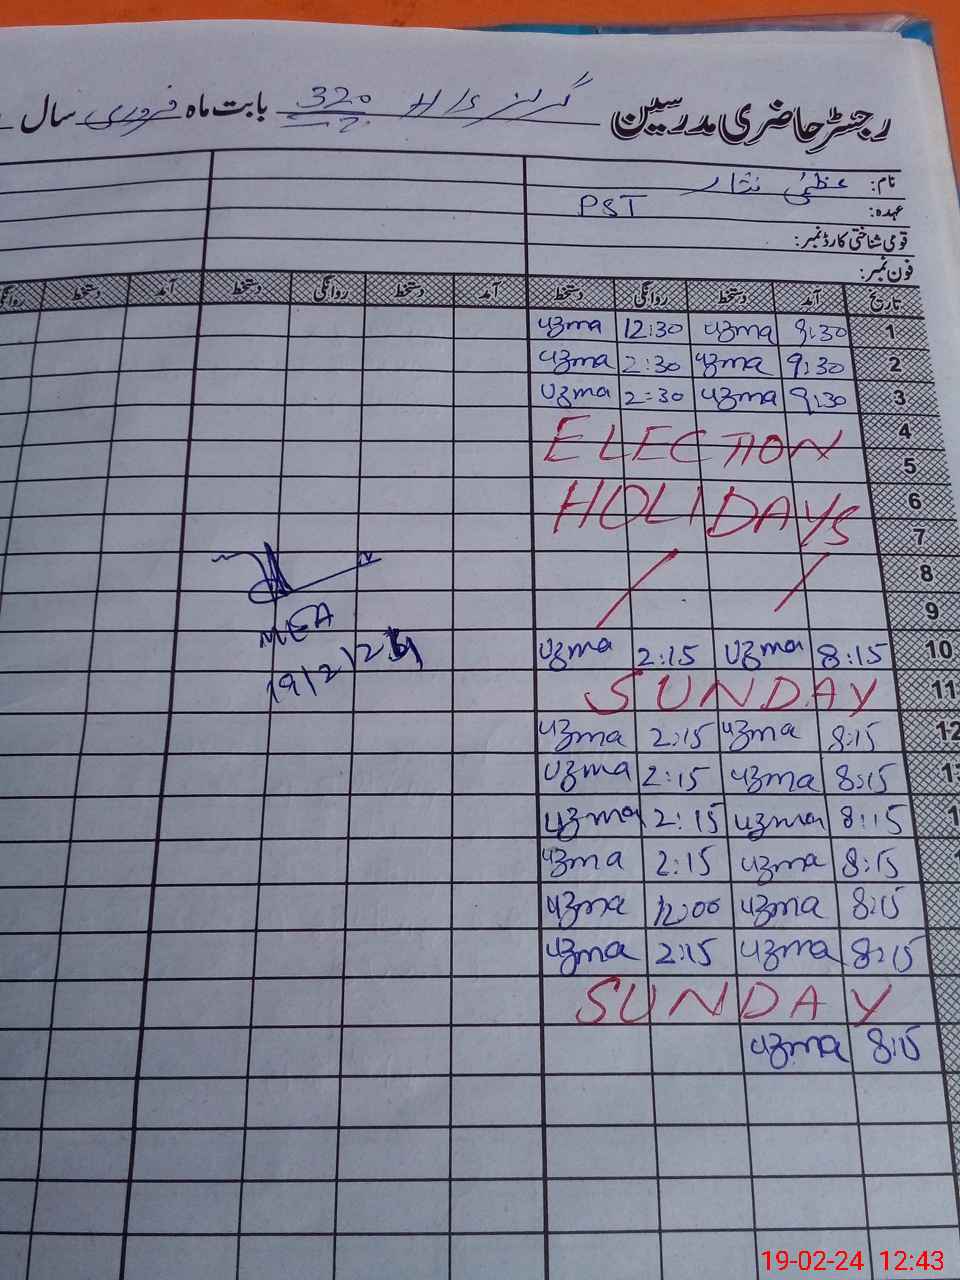 رجسٹر حاضری مدرسین گرلز H/S 320 بابت ماہ فروری سال
نام: عظمیٰ نثار
عہدہ: PST
قومی شناختی کارڈ نمبر:
فون نمبر:
تاریخ آمد دستخط روانگی دستخط آمد دستخط روانگی دستخط آمد دستخط روانگی
1 9:30 uzma 12:30 uzma
2 9:30 uzma 2:30 uzma
3 9:30 uzma 2:30 uzma
4 ELECTION
5
6 HOLIDAYS
7
8
9
10 8:15 uzma 2:15 uzma
11 SUNDAY
12 8:15 uzma 2:15 uzma
8:15 uzma 2:15 uzma
8:15 uzma 2:15 uzma
8:15 uzma 2:15 uzma
8:15 uzma 12:00 uzma
8:15 uzma 2:15 uzma
SUNDAY
8:15 uzma
MEA
19/2/24
19-02-24 12:43